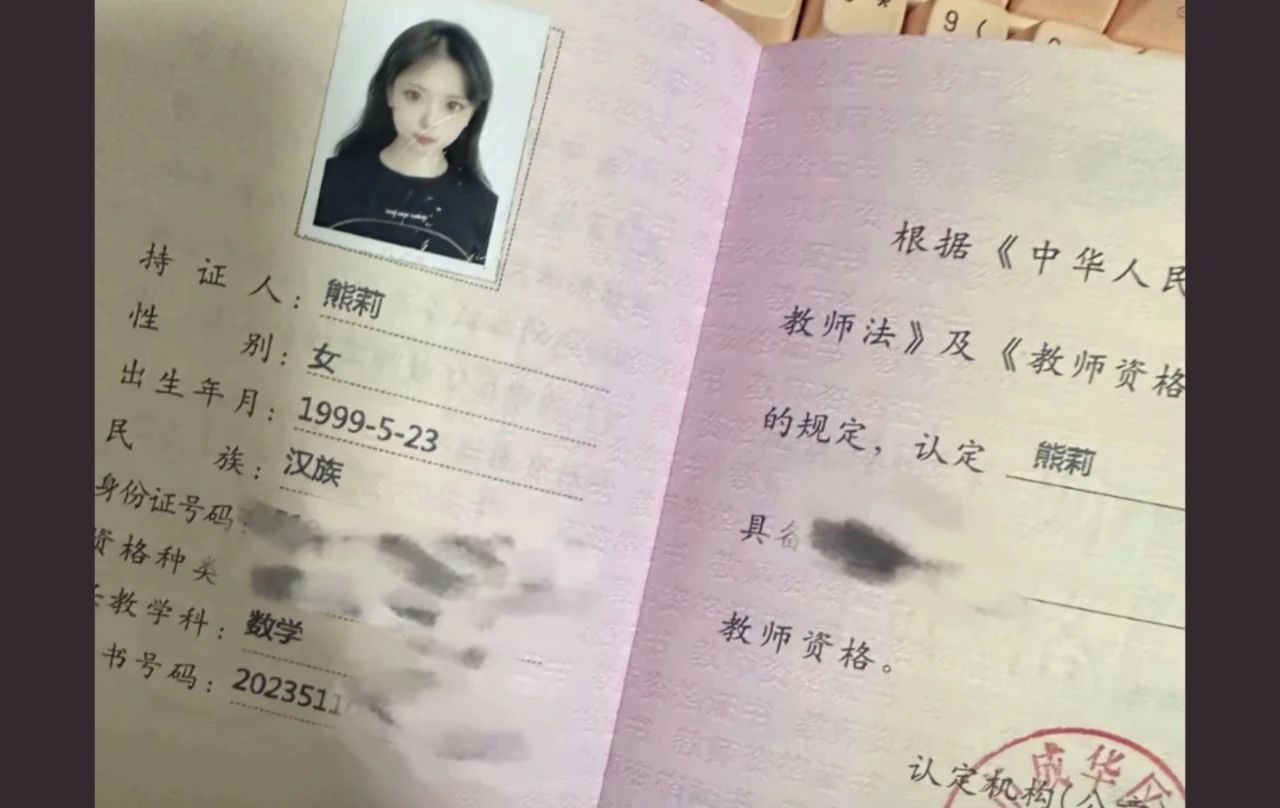 持证人：熊莉
性别：女
出生年月：1999-5-23
民族：汉族
身份证号码
资格种类
教学科：数学
书号码：2023511
根据《中华人民
教师法》及《教师资格
的规定，认定 熊莉
具备
教师资格。
认定机构(
成华区
9 (